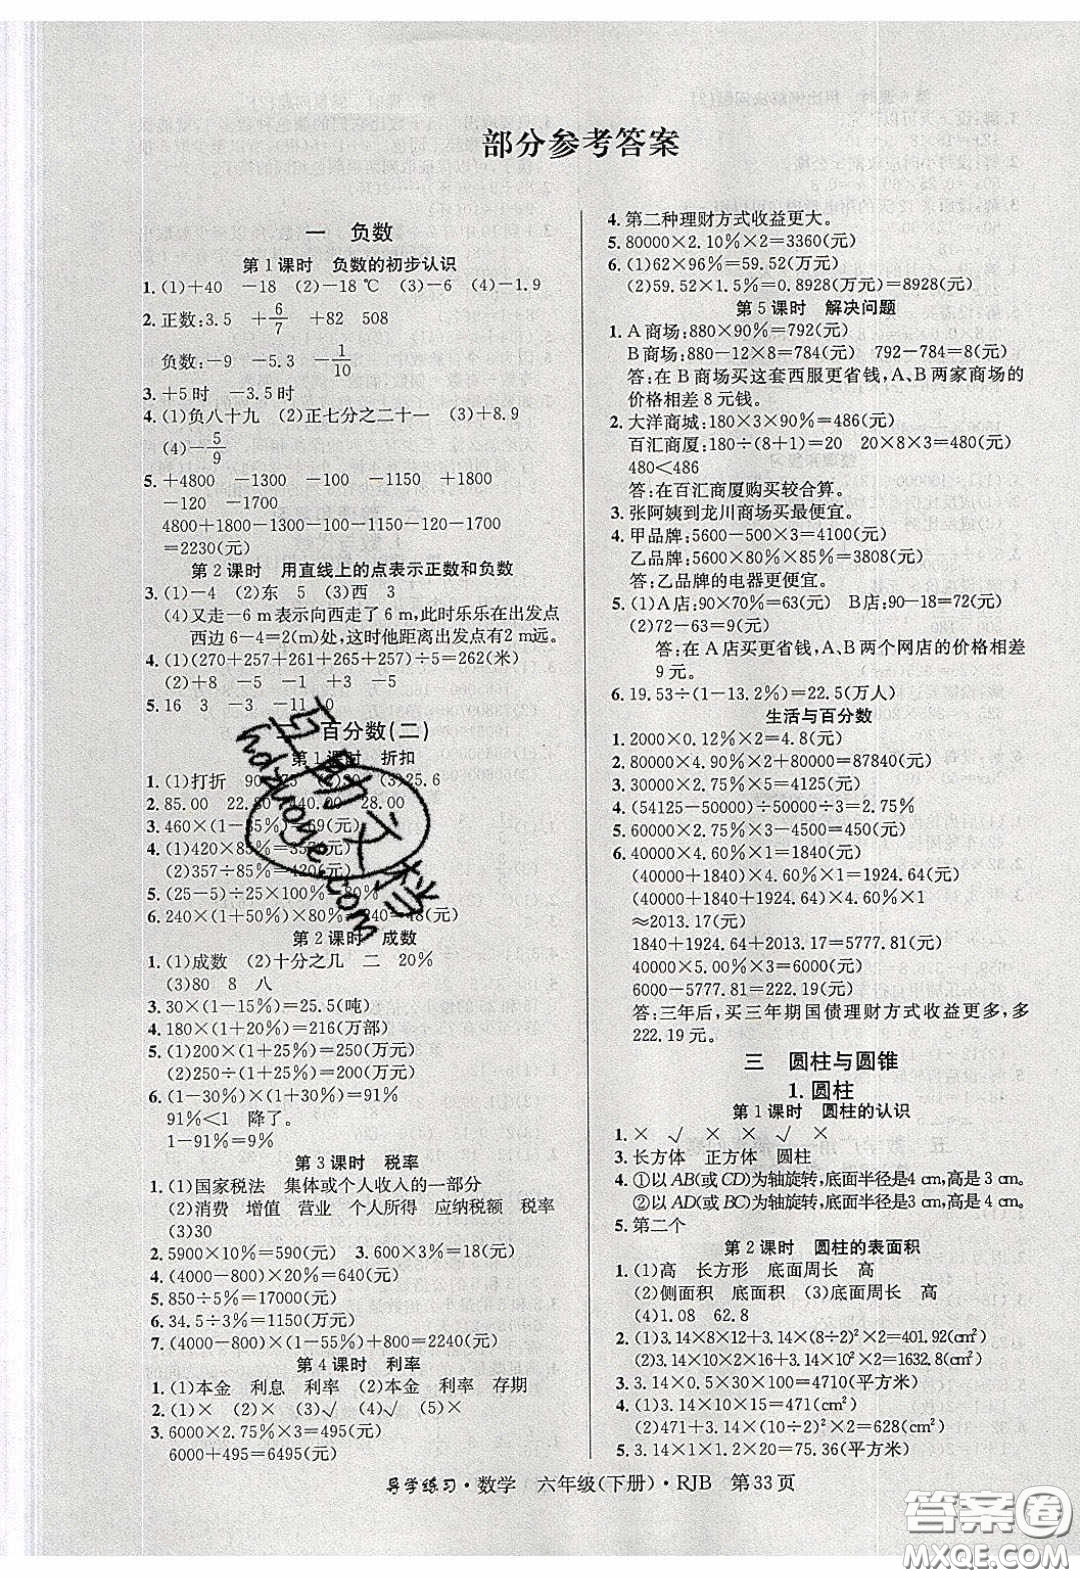 部分参考答案
一 负数
第1课时 负数的初步认识
1.(1)+40 -18 (2)-18℃ (3)-6 (4)-1.9
2.正数:3.5 +6/7 +82 508
负数:-9 -5.3 -1/10
3.+5时 -3.5时
4.(1)负八十九 (2)正七分之二十一 (3)+8.9
(4)-5/9
5.+4800 -1300 -100 -1150 +1800
-120 -1700
4800+1800-1300-100-1150-120-1700
=2230(元)
第2课时 用直线上的点表示正数和负数
3.(1)-4 (2)东 5 (3)西 3
(4)又走-6 m表示向西走了6 m,此时乐乐在出发点
西边6-4=2(m)处,这时他距离出发点有2 m远。
4.(1)(270+257+261+265+257)÷5=262(米)
(2)+8 -5 -1 +3 -5
5.16 3 -3 -11 0
二 百分数(二)
第1课时 折扣
1.(1)打折 90 75 (2)80 (3)25.6
2.85.00 22.80 140.00 28.00
3.460×(1-85%)=69(元)
4.(1)420×85%=357(元)
(2)357÷85%=420(元)
5.(25-5)÷25×100%=80%
6.240×(1+50%)×80%-240=48(元)
第2课时 成数
1.(1)成数 (2)十分之几 二 20%
(3)80 8 八
3.30×(1-15%)=25.5(吨)
4.180×(1+20%)=216(万部)
5.(1)200×(1+25%)=250(万元)
(2)250×(1+20%)=300(万元)
6.(1-30%)×(1+30%)=91%
91%<1 降了。
1-91%=9%
第3课时 税率
1.(1)国家税法 集体或个人收入的一部分
(2)消费 增值 营业 个人所得 应纳税额 税率
(3)30
2.5900×10%=590(元) 3.600×3%=18(元)
4.(4000-800)×20%=640(元)
5.850÷5%=17000(元)
6.34.5÷3%=1150(万元)
7.(4000-800)×(1-55%)+800=2240(元)
第4课时 利率
1.(1)本金 利息 利率 (2)本金 利率 存期
2.(1)× (2)× (3)√ (4)√ (5)×
3.6000×2.75%×3=495(元)
6000+495=6495(元)
4.第二种理财方式收益更大。
5.80000×2.10%×2=3360(元)
6.(1)62×96%=59.52(万元)
(2)59.52×1.5%=0.8928(万元)=8928(元)
第5课时 解决问题
1.A商场:880×90%=792(元)
B商场:880-12×8=784(元) 792-784=8(元)
答:在B商场买这套西服更省钱,A、B两家商场的
价格相差8元钱。
2.大洋商城:180×3×90%=486(元)
百汇商厦:180÷(8+1)=20 20×8×3=480(元)
480<486
答:在百汇商厦购买较合算。
3.张阿姨到龙川商场买最便宜。
4.甲品牌:5600-500×3=4100(元)
乙品牌:5600×80%×85%=3808(元)
答:乙品牌的电器更便宜。
5.(1)A店:90×70%=63(元) B店:90-18=72(元)
(2)72-63=9(元)
答:在A店买更省钱,A、B两个网店的价格相差
9元。
6.19.53÷(1-13.2%)=22.5(万人)
生活与百分数
1.2000×0.12%×2=4.8(元)
2.80000×4.90%×2+80000=87840(元)
3.30000×4.75%×5=7125(元)
4.(54125-50000)÷50000÷3=2.75%
5.60000×2.75%×3-4500=450(元)
6.40000×4.60%×1=1840(元)
(40000+1840)×4.60%×1=1924.64(元)
(40000+1840+1924.64)×4.60%×1
≈2013.17(元)
1840+1924.64+2013.17=5777.81(元)
40000×5.00%×3=6000(元)
6000-5777.81=222.19(元)
答:三年后,买三年期国债理财方式收益更多,多
222.19元。
三 圆柱与圆锥
1.圆柱
第1课时 圆柱的认识
1.× √ × × ×
3.长方体 正方体 圆柱
4.①以AB(或CD)为轴旋转,底面半径是4 cm,高是3 cm。
②以AD(或BC)为轴旋转,底面半径是3 cm,高是4 cm。
5.第二个
第2课时 圆柱的表面积
1.(1)高 长方形 底面周长 高
(2)侧面积 底面积 (3)底面周长 高
(4)1.08 62.8
2.(1)3.14×8×12+3.14×(8÷2)²×2=401.92(cm²)
(2)3.14×10×2×16+3.14×10²×2=1632.8(cm²)
3.3.14×0.5×30×100=4710(平方米)
4.(1)3.14×10×15=471(cm²)
(2)471+3.14×(10÷2)²×2=628(cm²)
5.3.14×1×1.2×20=75.36(平方米)
互助文档
hdzuoye.com
导学练习·数学 六年级(下册)·RJB 第33页
答案圈
MXQE.COM